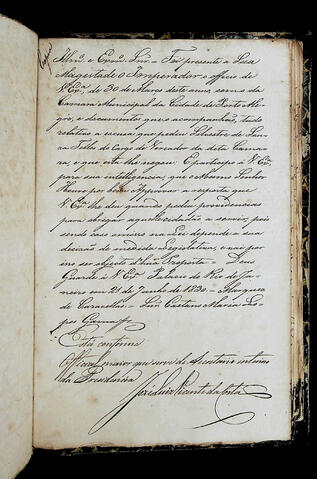 Illmo. e Exmo. Snr. - Foi presente a Sua
Magestade O Imperador o officio de
V. Exa. de 30 de Março deste anno, com o da
Camara Municipal da Cidade de Porto Ale-
gre, e documentos que o acompanhão, tudo
relativo a escusa que pedio Silvestre de Sou-
za Telles do Cargo de Vereador da dita Cama-
ra, e que esta lhe negou. E participo a V. Exa.
para sua intelligencia, que o Mesmo Senhor
Houve por bem Approvar a resposta que
V. Exa. lhe deu quando pedio providencias
para obrigar aquelle cidadão a servir, pois
sendo caso omisso na Lei depende a sua
decisão de medida Legislativa, e vai por
isso ser objecto d'huã Proposta. - Deos
Guarde a V. Exa. Palacio do Rio de Ja-
neiro em 21 de Junho de 1830. - Marquez
de Caravellas. - Snr. Caetano Maria Lo-
pes Gama
Está conforme
Official maior que serve de Secretario interino
da Presidencia
José Luiz Vicente da Costa